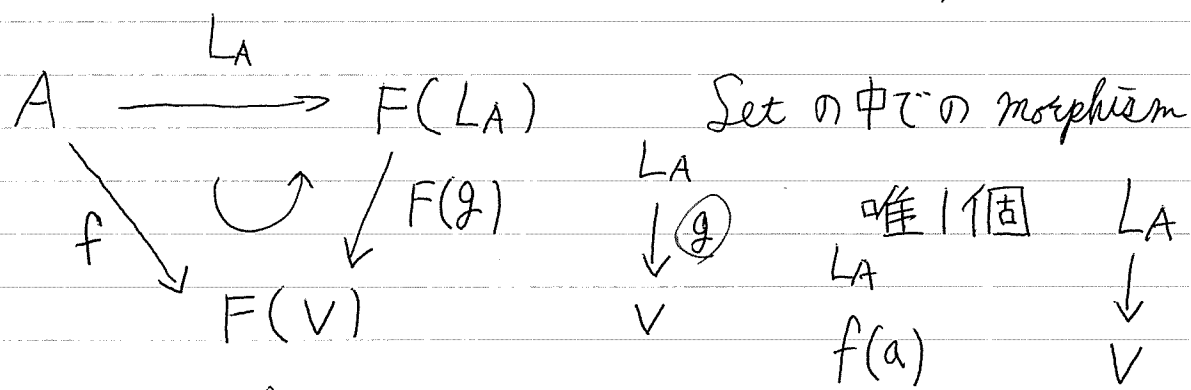 L_A
A → F(L_A) Set の中での morphism
f F(g) L_A ↓ g 唯1個 L_A ↓
F(V) V L_A V
f(a)